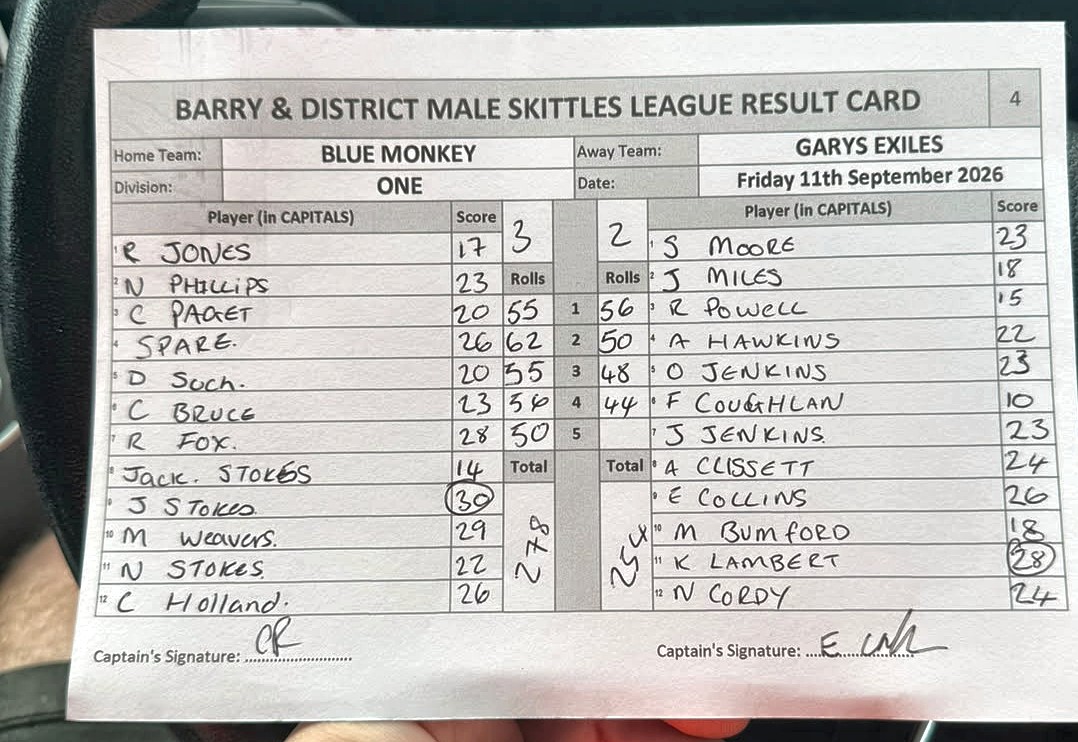 BARRY & DISTRICT MALE SKITTLES LEAGUE RESULT CARD 4
Home Team: BLUE MONKEY Away Team: GARYS EXILES
Division: ONE Date: Friday 11th September 2026
Player (in CAPITALS) Score 3 2 Player (in CAPITALS) Score
1 R JONES 17 1 S MOORE 23
2 N PHILLIPS 23 Rolls Rolls 2 J MILES 18
3 C PAGET 20 55 1 56 3 R POWELL 15
4 SPARE. 26 62 2 50 4 A HAWKINS 22
5 D Such. 20 55 3 48 5 O JENKINS 23
6 C BRUCE 23 56 4 44 6 F COUGHLAN 10
7 R FOX. 28 50 5 7 J JENKINS. 23
8 Jack. STOKES 14 Total Total 8 A CLISSETT 24
9 J STOKES 30 9 E COLLINS 26
10 M Weavers. 29 278 254 10 M BUMFORD 18
11 N STOKES. 22 11 K LAMBERT 28
12 C Holland. 26 12 N CORDY 24
Captain's Signature: CR Captain's Signature: E